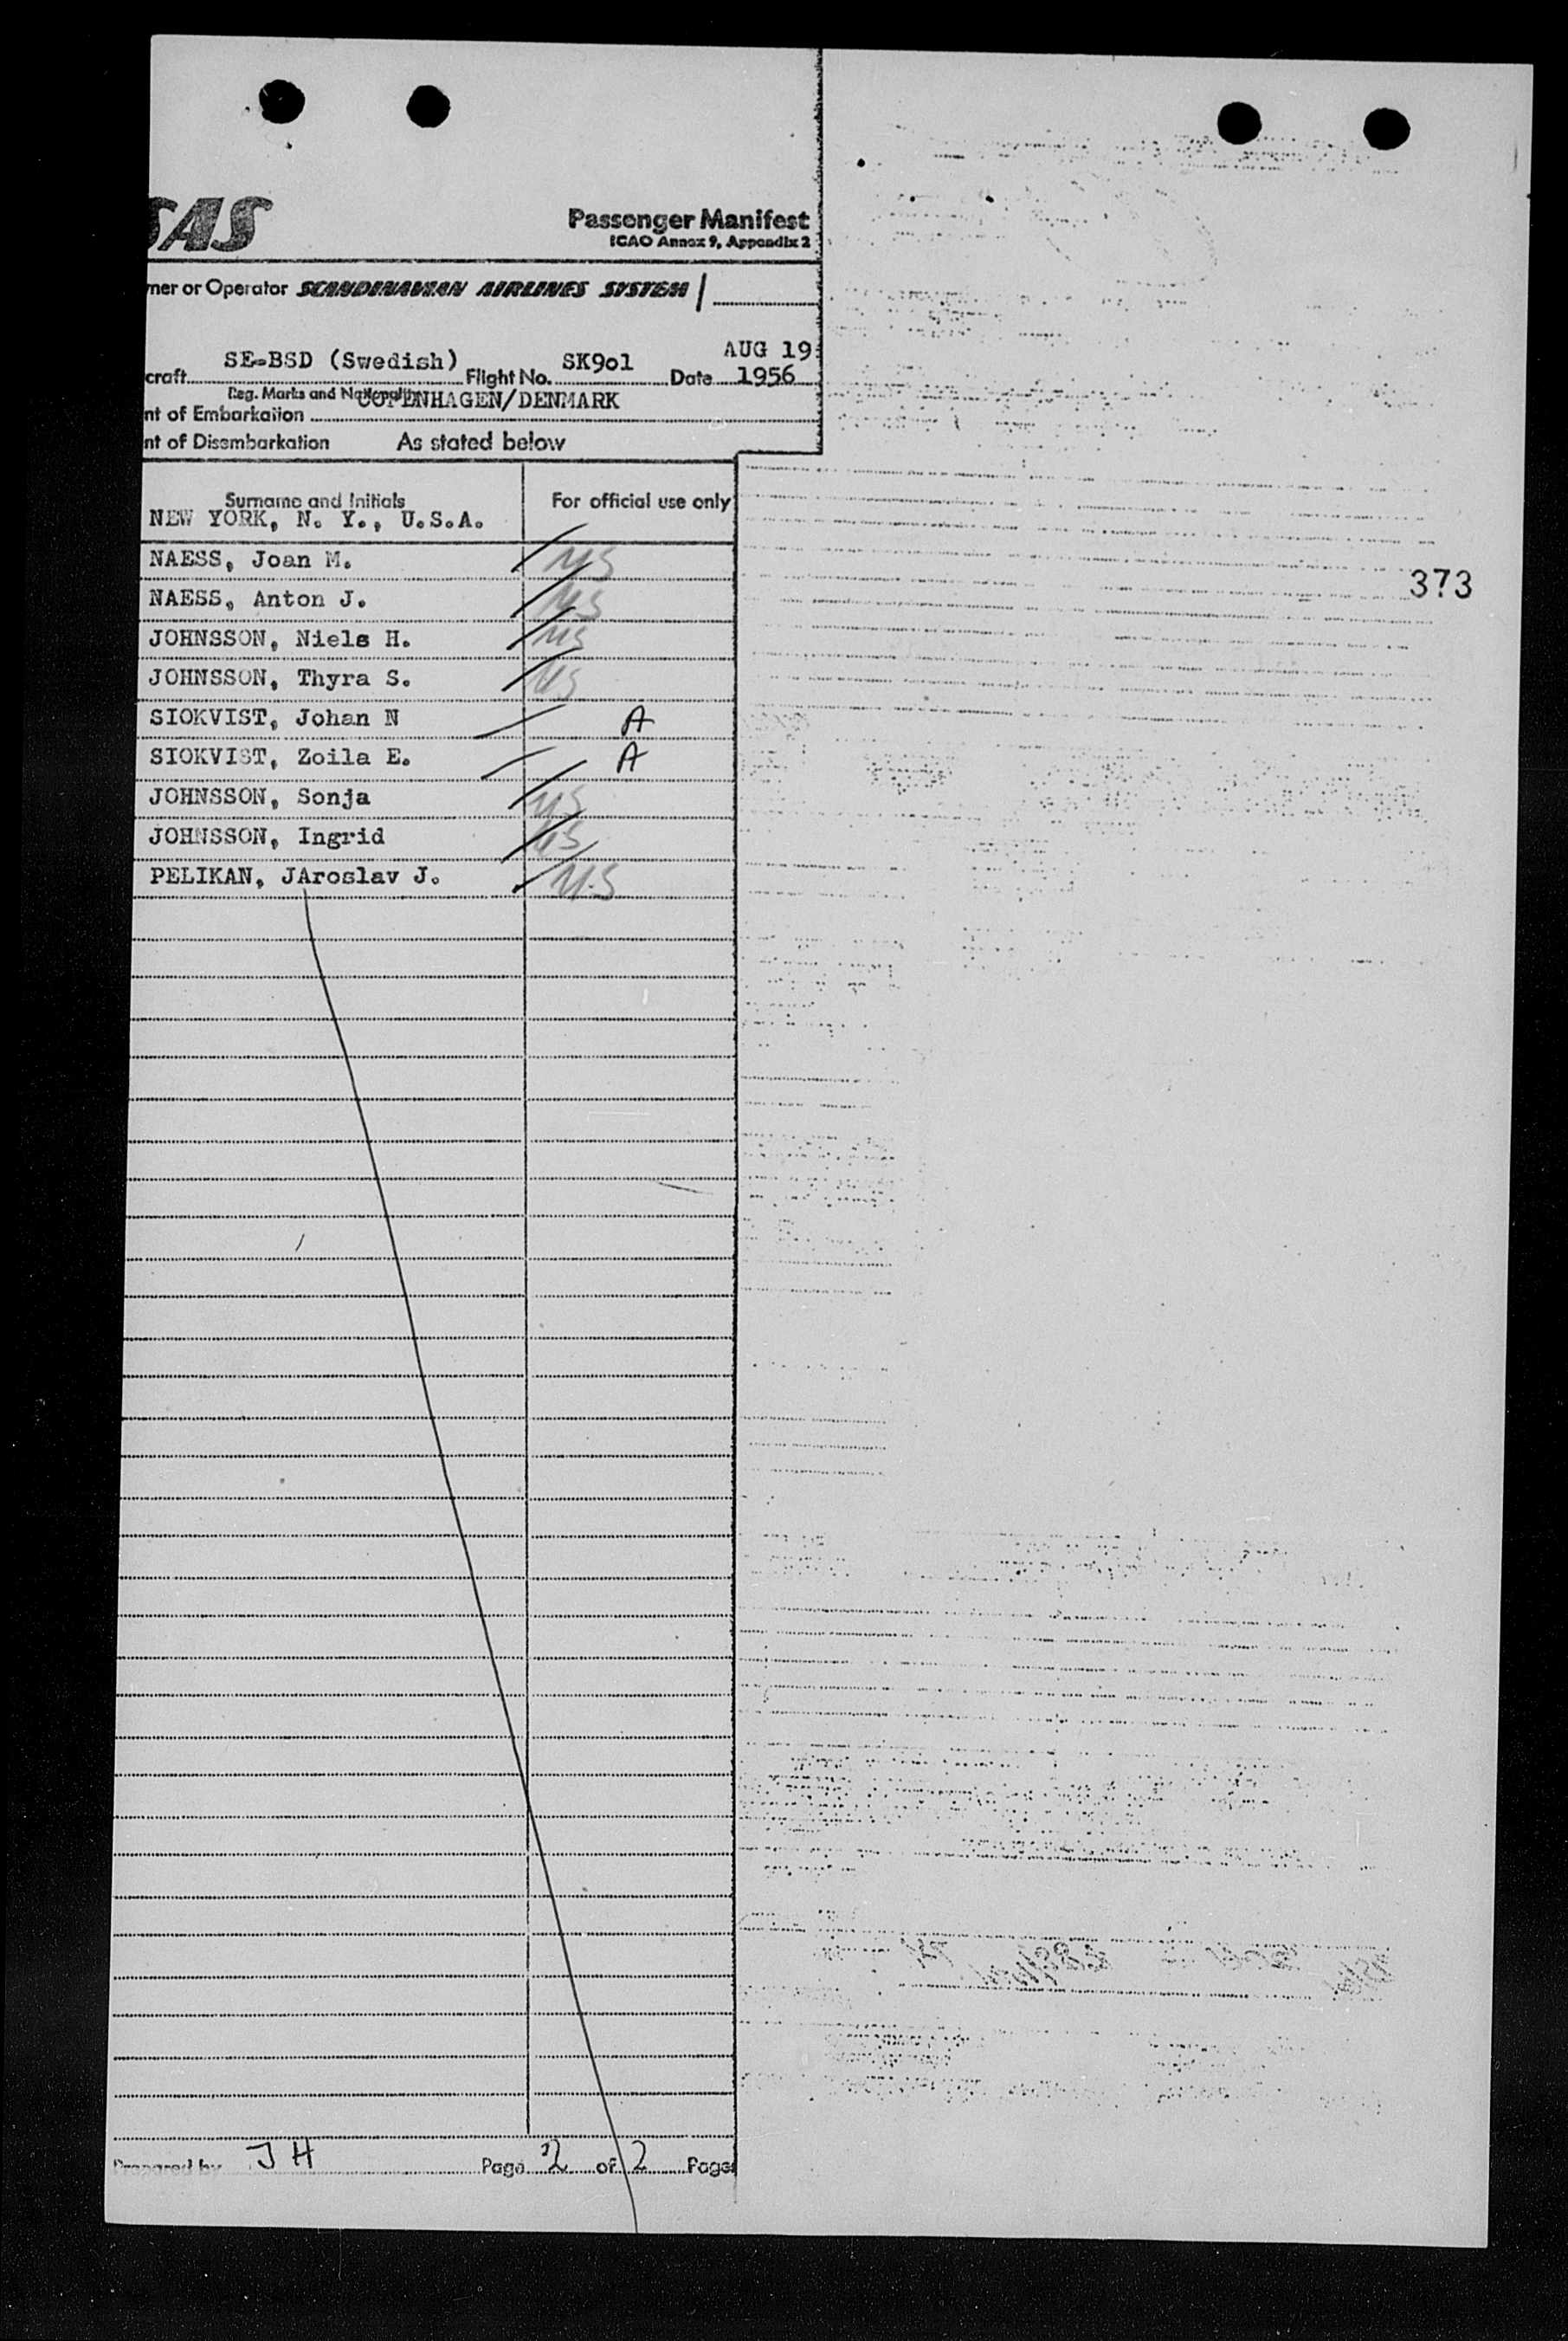 SAS
Passenger Manifest
ICAO Annex 9, Appendix 2
ner or Operator SCANDINAVIAN AIRLINES SYSTEM
craft SE-BSD (Swedish) Flight No. SK9o1 Date AUG 19 1956
Reg. Marks and Nationality
nt of Embarkation COPENHAGEN/DENMARK
nt of Disembarkation As stated below
Surname and Initials For official use only
NEW YORK, N. Y., U.S.A.
NAESS, Joan M. US
NAESS, Anton J. US
JOHNSSON, Niels H. US
JOHNSSON, Thyra S. US
SIOKVIST, Johan N A
SIOKVIST, Zoila E. A
JOHNSSON, Sonja US
JOHNSSON, Ingrid US
PELIKAN, JAroslav J. U.S
Prepared by J H Page 2 of 2 Pages
373